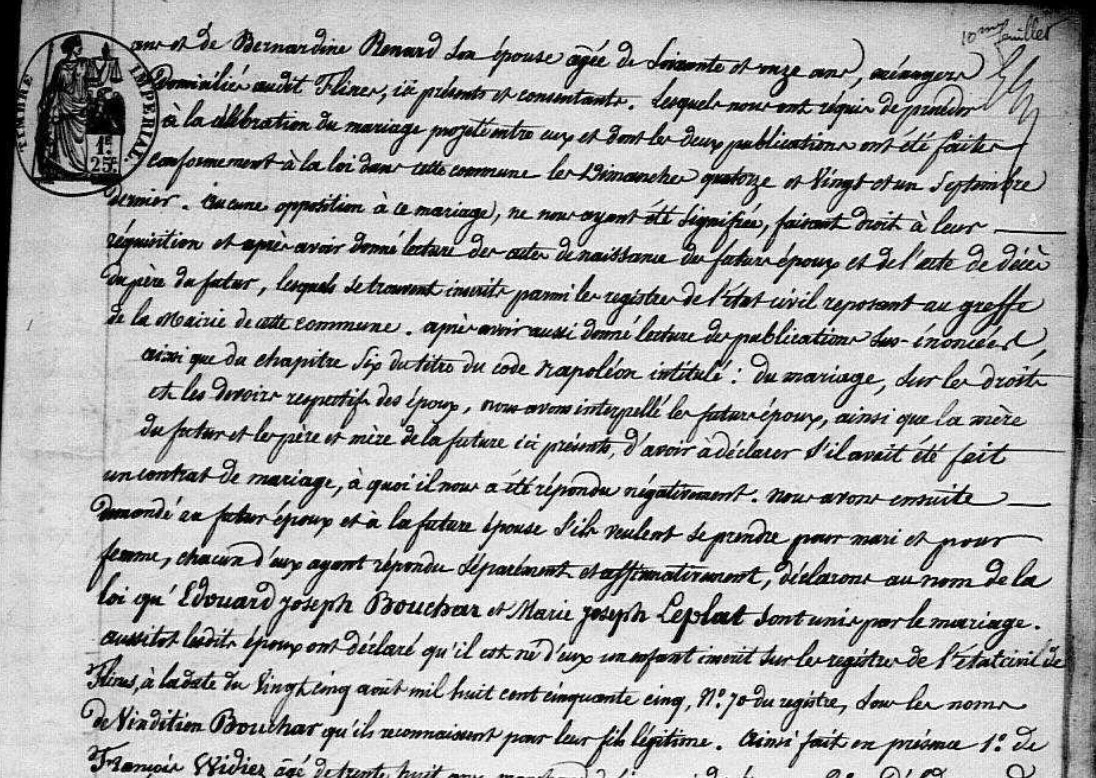 10me feuillet
TIMBRE IMPÉRIAL
1F
25C
ans et de Bernardine Renard son épouse agée de Soixante et onze ans, ménagers
Domiciliés audit Flines, ici présents et consentants. Lesquels nous ont requis de procéder
à la célébration du mariage projeté entre eux et dont les deux publications ont été faites
conformement à la loi dans cette commune les Dimanches quatorze et Vingt et un Septembre
dernier. Aucune opposition à ce mariage, ne nous ayant été Signifiée, faisant droit à leur
réquisition et après avoir donné lecture des actes de naissance des futurs époux et de l'acte de décès
du père du futur, lesquels se trouvent inscrits parmi les registres de l'état civil reposant au greffe
de la Mairie de cette commune. après avoir aussi donné lecture des publications sus-énoncées,
ainsi que du chapitre Six du titre du code Napoléon intitulé : du mariage, Sur les droits
et les devoirs respectifs des époux, nous avons interpellé les futurs époux, ainsi que la mère
du futur et les père et mère de la future ici présents, d'avoir à déclarer S'il avait été fait
un contrat de mariage, à quoi il nous a été répondu négativement. nous avons ensuite
demandé au futur époux et à la future épouse S'ils veulent se prendre pour mari et pour
femme, chacun d'eux ayant répondu Séparément et affirmativement, déclarons au nom de la
loi qu'Edouard Joseph Bouchar et Marie Joseph Leplat Sont unis par le mariage.
aussitot lesdits époux ont déclaré qu'il est né d'eux un enfant inscrit sur les registres de l'état civil de
Flines, à la date du Vingt cinq août mil huit cent cinquante cinq, N° 70 du registre, Sous les noms
de Vindition Bouchar qu'ils reconnaissent pour leur fils légitime. Ainsi fait en présence 1° de
François Widiez âgé de trente huit ans